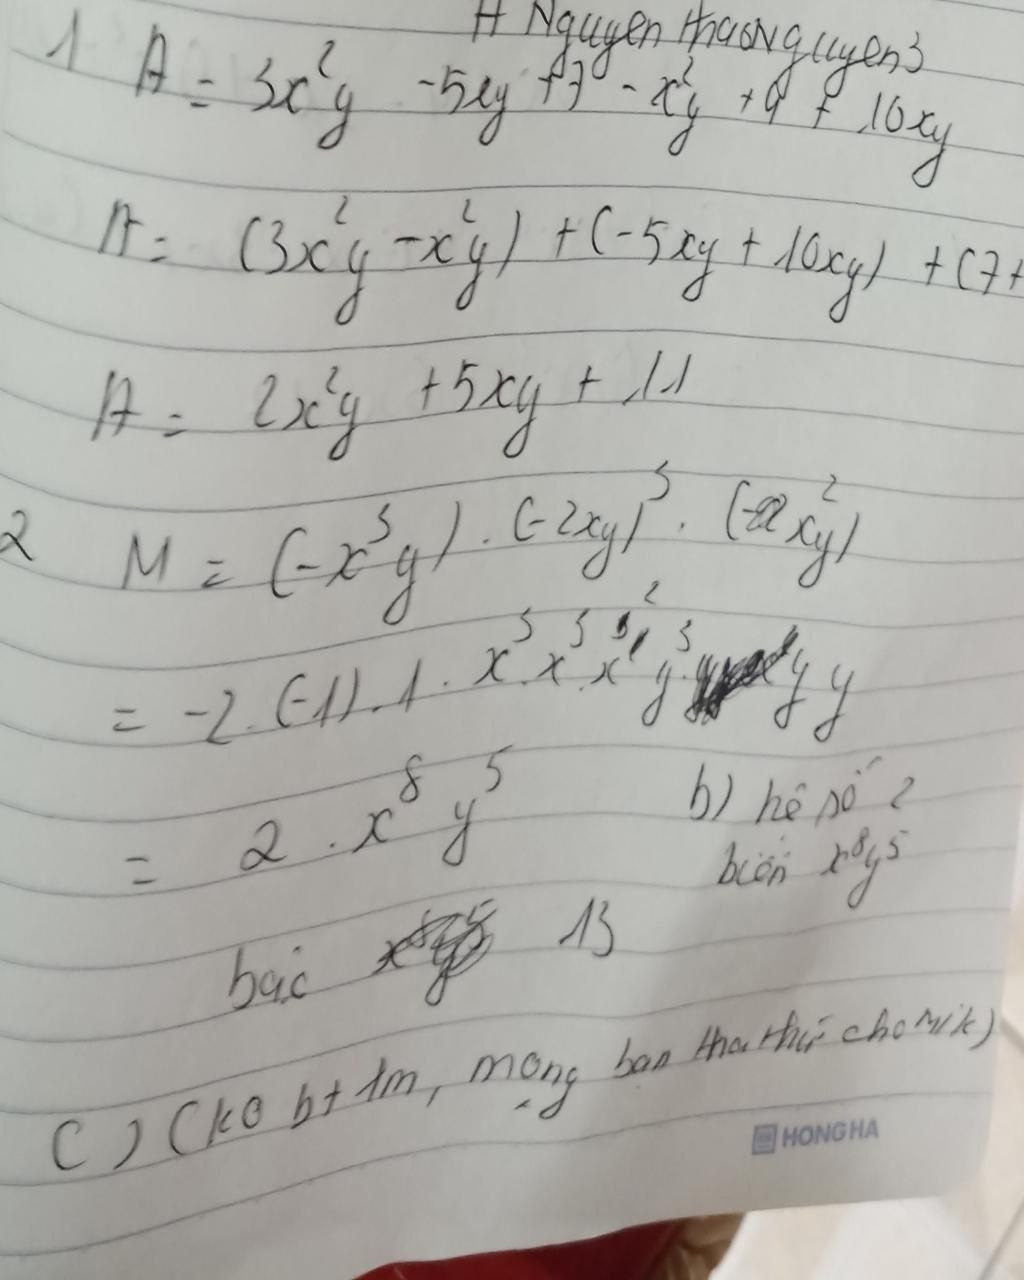 # Nguyen thaonguyen3
1 A = 3x²y -5xy +7 - x²y + 4 + 10xy
A = (3x²y - x²y) + (-5xy + 10xy) + (7+
A = 2x²y +5xy + 11
2 M = (-x³y) . (-2xy)³ . (- xy²)
= -2 . (-1) . 1 . x³ x³ x² y³ y y
= 2 . x⁸ y⁵
b) hệ số 2
biến x⁸y⁵
bậc 13
C) (ko bt lm, mong bạn tha thứ cho Mik)
HONG HA